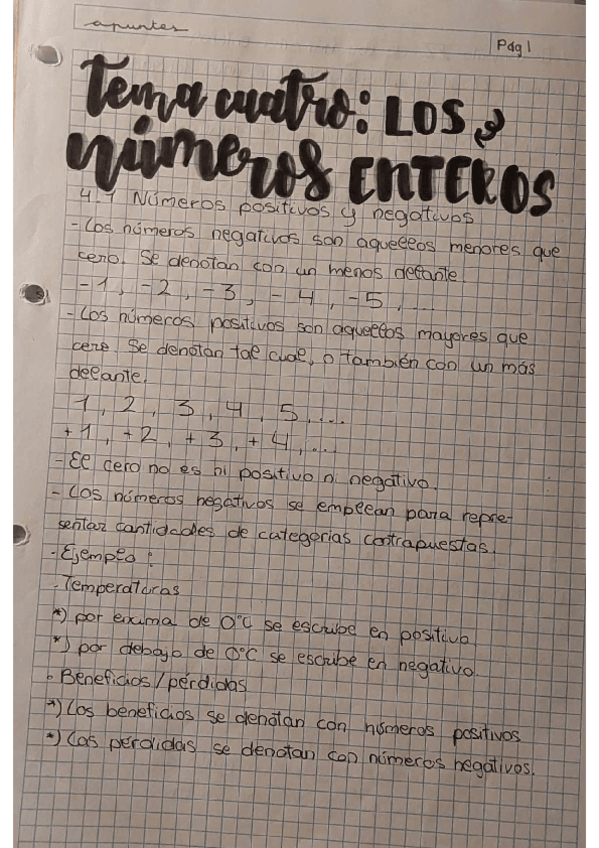 apuntes
Pág 1
Tema cuatro: LOS
números ENTEROS
4.1 Números positivos y negativos
- Los números negativos son aquellos menores que
cero. Se denotan con un menos delante.
-1, -2, -3, -4, -5, ...
- Los números positivos son aquellos mayores que
cero. Se denotan tal cual, o también con un más
delante.
1, 2, 3, 4, 5, ...
+1, +2, +3, +4, ...
- El cero no es ni positivo ni negativo.
- Los números negativos se emplean para repre-
sentar cantidades de categorías contrapuestas.
- Ejemplo:
- Temperaturas
*) por encima de 0°C se escribe en positivo
*) por debajo de 0°C se escribe en negativo.
• Beneficios/pérdidas
*) Los beneficios se denotan con números positivos
*) Las pérdidas se denotan con números negativos.